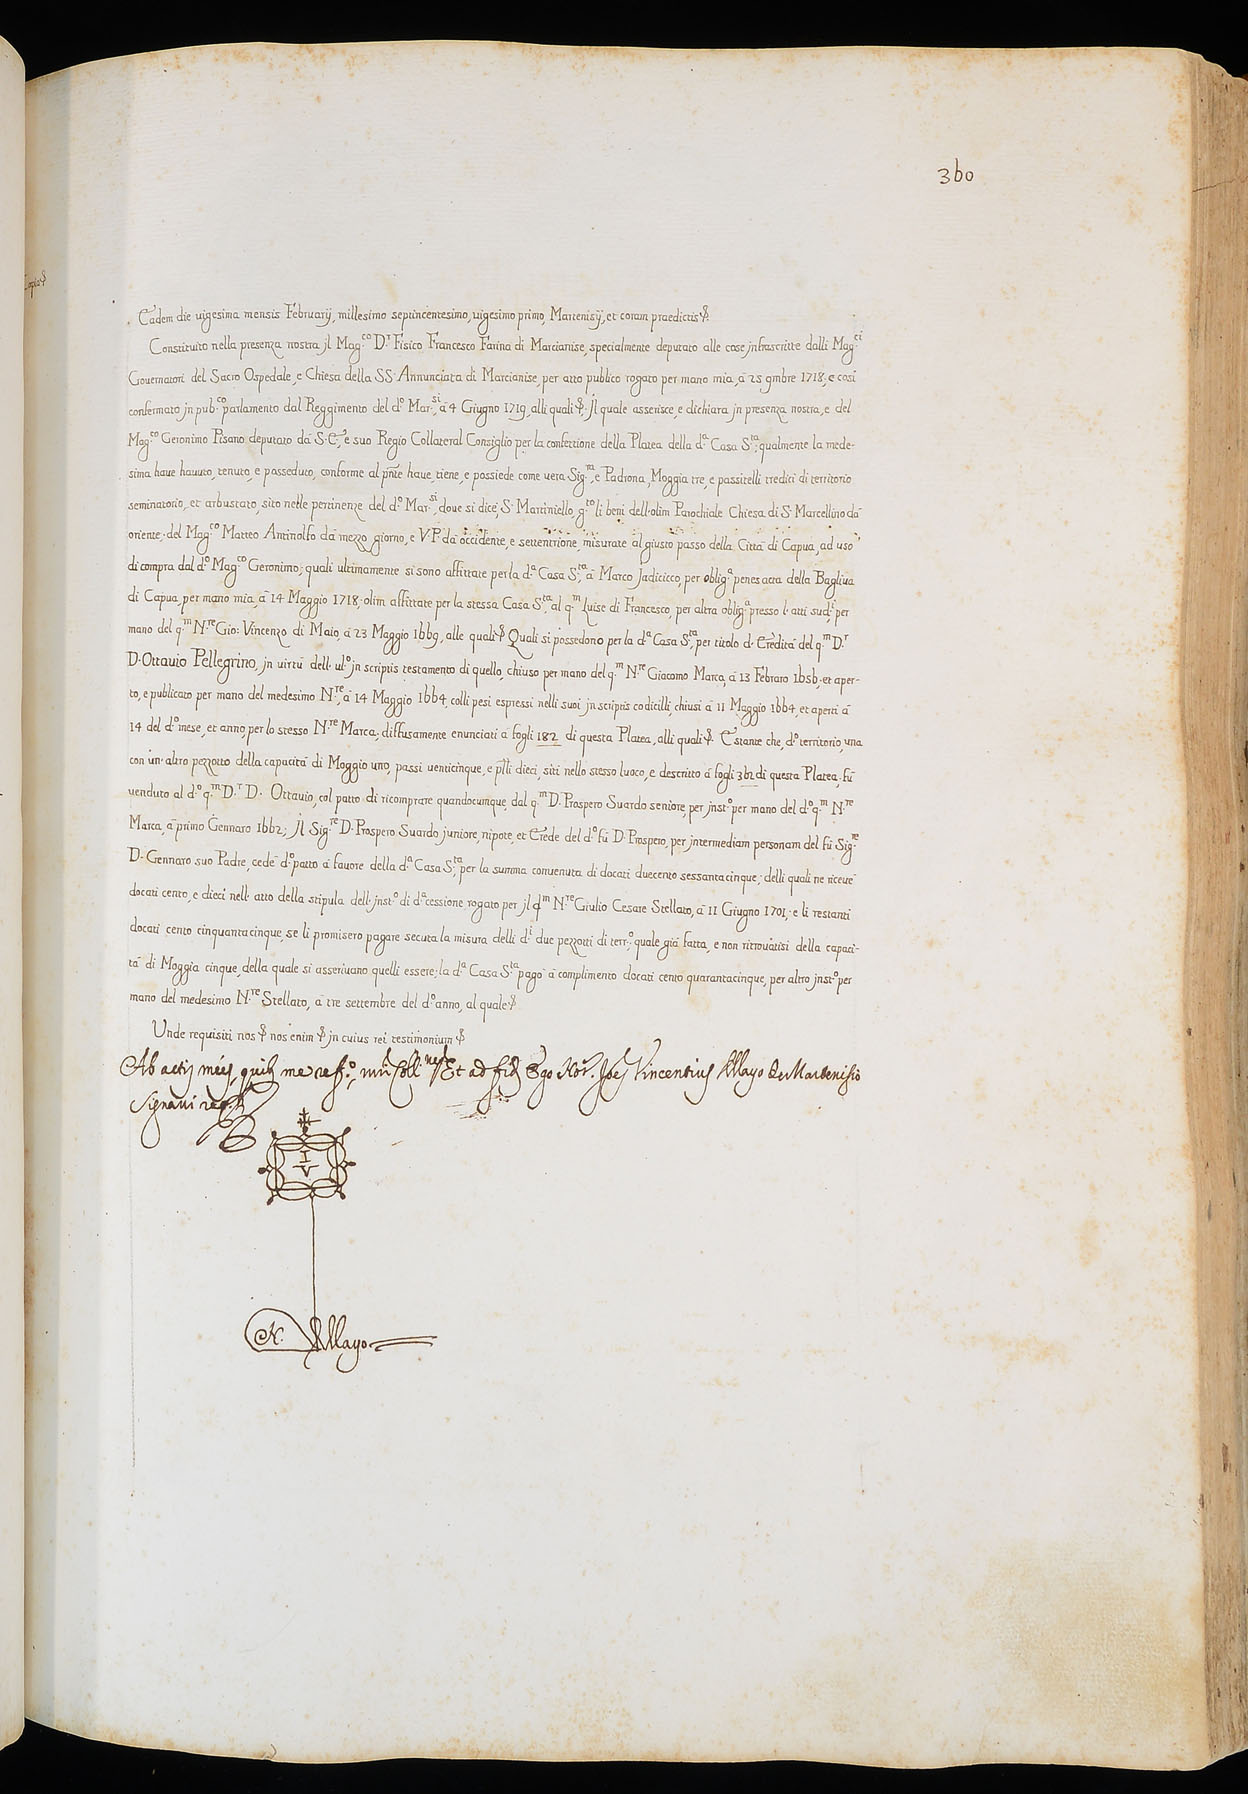 3b0
Eadem die uigesima mensis Februarij, millesimo septincentesimo, uigesimo primo, Martenisij, et coram praedictis &.
Constituito nella presenza nostra jl Mag.co D.r Fisico Francesco Farina di Marcianise, specialmente deputato alle cose jnfrascritte dalli Mag.ci
Gouernatori del Sacro Ospedale, e Chiesa della SS. Annunciata di Marcianise, per atto publico rogato per mano mia, à 25 9mbre 1718, e così
confermato jn pub.co parlamento dal Reggimento del d.o Mar.si, à 4 Giugno 1719, alli quali &. jl quale asserisce, e dichiara jn presenza nostra, e del
Mag.co Geronimo Pisano deputato dà S.E., e suo Regio Collateral Consiglio per la confettione della Platea della d.a Casa S.ta, qualmente la mede-
sima haue hauuto, tenuto, e posseduto, conforme al pnte haue, tiene, e possiede come uera Sig.ra, e Padrona, Moggia tre, e passitelli tredici di territorio
seminatorio, et arbustato, sito nelle pertinenze del d.o Mar.si, doue si dice, S. Martiniello, g.to li beni dell'olim Parochiale Chiesa di S. Marcellino dà
oriente, del Mag.co Matteo Antinolfo dà mezzo giorno, e V.P. dà occidente, e settentrione, misurate al giusto passo della Città di Capua, ad uso
di compra dal d.o Mag.co Geronimo; quali ultimamente si sono affittate per la d.a Casa S.ta, à Marco Jaditicco, per oblig.a penes acta della Bagliua
di Capua, per mano mia, à 14 Maggio 1718, olim affittate per la stessa Casa S.ta, al q.m Luise di Francesco, per altra oblig.a presso l'atti sud.i, per
mano del q.m N.re Gio: Vincenzo di Maio, à 23 Maggio 1669, alle quali & Quali si possedono per la d.a Casa S.ta, per titolo d'Eredità del q.m D.r
D. Ottauio Pellegrino, jn uirtù dell'ul.o jn scriptis testamento di quello, chiuso per mano del q.m N.re Giacomo Marca, à 13 Febraro 1656, et aper-
to, e publicato per mano del medesimo N.re, à 14 Maggio 1664, colli pesi espressi nelli suoi jn scriptis codicilli, chiusi à 11 Maggio 1664, et aperti à
14 del d.o mese, et anno, per lo stesso N.re Marca, diffusamente enunciati à fogli 182 di questa Platea, alli quali &. Estante che, d.o territorio, una
con un'altro pezzotto della capacità di Moggio uno, passi uenticinque, e p̃lli dieci, siti nello stesso luoco, e descritto à fogli 362 di questa Platea, fù
uenduto al d.o q.m D.r D. Ottauio, col patto di ricomprare quandocumque, dal q.m D. Prospero Suardo seniore, per jnst.o per mano del d.o q.m N.re
Marca, à primo Gennaro 1662; jl Sig.re D. Prospero Suardo juniore, nipote, et Erede del d.o fù D. Prospero, per jntermediam personam del fù Sig.re
D. Gennaro suo Padre, cedè d.o patto à fauore della d.a Casa S.ta, per la summa conuenuta di docati duecento sessantacinque; delli quali ne riceuè
docati cento, e dieci nell'atto della stipula dell'jnst.o di d.a cessione rogato per jl q.m N.re Giulio Cesare Stellato, à 11 Giugno 1701, e li restanti
docati cento cinquantacinque, se li promisero pagare secuta la misura delli d.i due pezzotti di terr.o, quale già fatta, e non ritrouatisi della capaci-
tà di Moggia cinque, della quale si asseriuano quelli essere; la d.a Casa S.ta pagò à complimento docati cento quarantacinque, per altro jnst.o per
mano del medesimo N.re Stellato, à tre settembre del d.o anno, al quale &
Unde requisiti nos & nos enim & jn cuius rei testimonium &
Ab actis meis, quibs me refero, Et ad fidem Ego Not.r Joes Vincentius de Mayo de Martenisio
signavi
IV
N. de Mayo